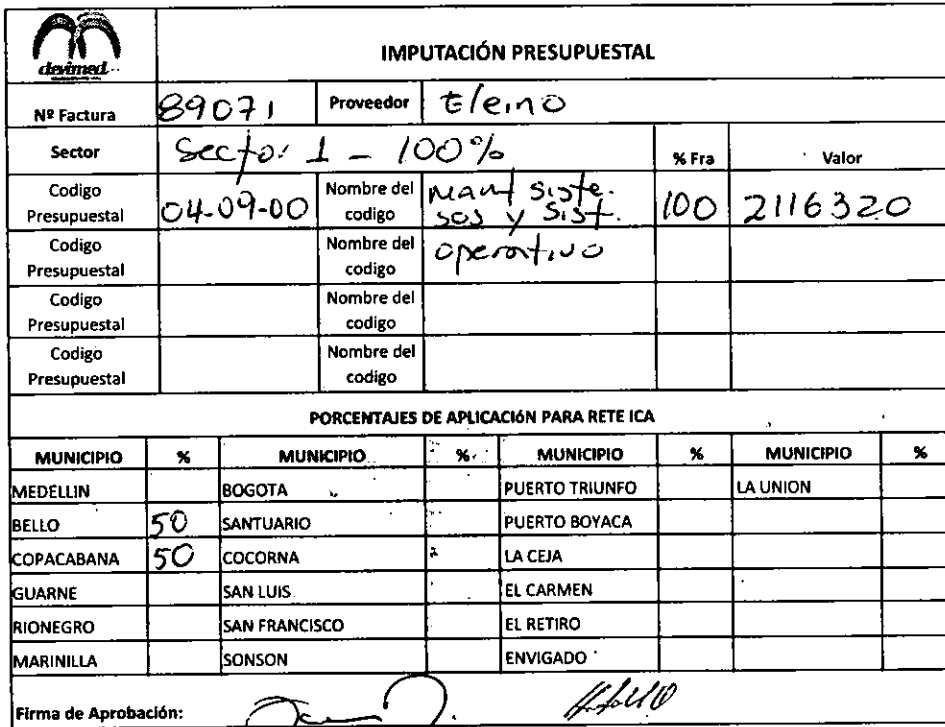 devimed
IMPUTACIÓN PRESUPUESTAL
Nº Factura 89071 Proveedor Eleino
Sector Sector 1 - 100% % Fra Valor
Codigo Presupuestal 04-09-00 Nombre del codigo Mant siste. sos y sist. 100 2116320
Codigo Presupuestal Nombre del codigo operativo
Codigo Presupuestal Nombre del codigo
Codigo Presupuestal Nombre del codigo
PORCENTAJES DE APLICACIÓN PARA RETE ICA
MUNICIPIO % MUNICIPIO % MUNICIPIO % MUNICIPIO %
MEDELLIN BOGOTA PUERTO TRIUNFO LA UNION
BELLO 50 SANTUARIO PUERTO BOYACA
COPACABANA 50 COCORNA LA CEJA
GUARNE SAN LUIS EL CARMEN
RIONEGRO SAN FRANCISCO EL RETIRO
MARINILLA SONSON ENVIGADO
Firma de Aprobación: